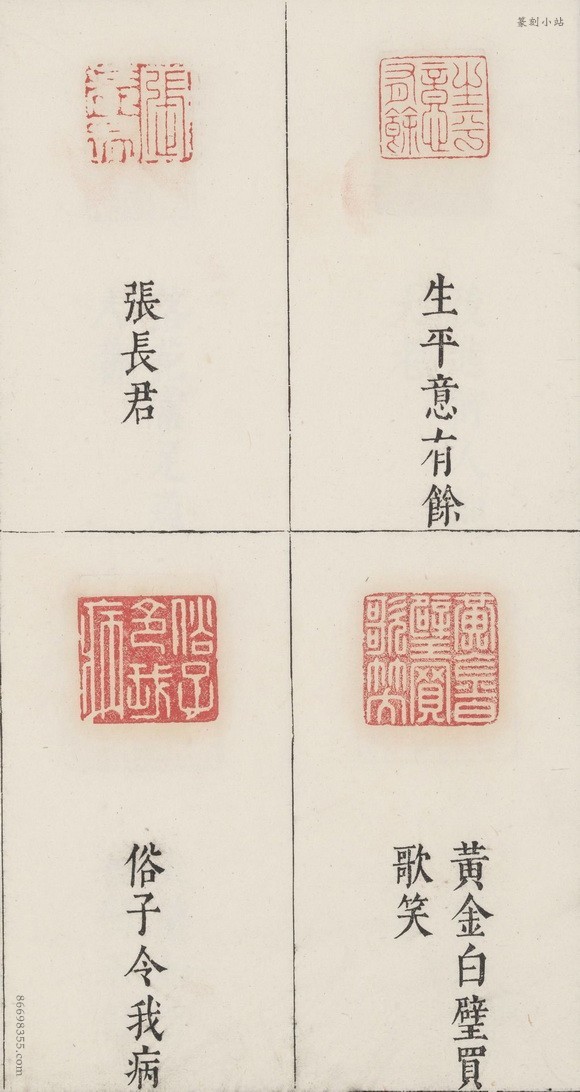 篆刻小站
生平意有餘
張長君
黃金白璧買
歌笑
俗子令我病
86698355.com